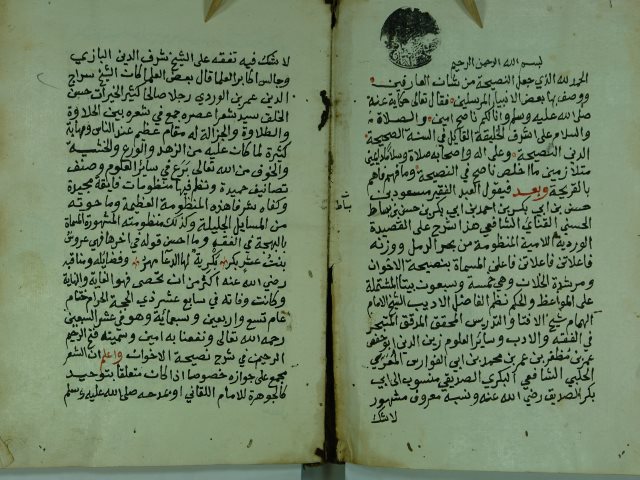 بسم الله الرحمن الرحيم
الحمد لله الذي جعل النصيحة من شأن العارفين
ووصف بها بعض الانبياء المرسلين فقال تعالى حكاية عنه
صلى الله عليه وسلم وانا لكم ناصح امين والصلاة
والسلام على اشرف الخليقة القايل في السنة الصحيحة
الدين النصيحة وعلى اله واصحابه صلاة وسلاما دايمين
متلازمين ما اخلص ناصح في النصيحة وما فهم فاهم
بالقريحة وبعد فيقول العبد الفقير مسعود بن
حسن بن ابي بكر بن احمد بن ابي بكر بن حسن بن
الحسني القناي الشافعي هذا شرح على القصيدة
الوردية اللامية المنظومة من بحر الرمل ووزنه
فاعلاتن فاعلاتن فاعلن المسماة بنصيحة الاخوان
ومرشدة الخلان وهي خمسة وسبعون بيتا المشتملة
على المواعظ والحكم نظم الفاضل الاديب الشيخ الامام
الهمام شيخ الافتا والتدريس المحقق المدقق المتبحر
في الفقه والادب وساير العلوم زين الدين ابو حفص
عمر بن مظفر بن عمر بن محمد بن ابي الفوارس المعري
الحلبي الشافعي البكري الصديقي منسوب الى ابي
بكر الصديق رضي الله عنه ونسبه معروف مشهور
لا شك
لا شك فيه تفقه على الشيخ شرف الدين البارزي
وجالس اكابر العلما قال بعض العلما كان الشيخ سراج
الدين عمر بن الوردي رجلا صالحا كثير الخيرات حسن
الخلق سيد شعرا عصره جمع في شعره بين الحلاوة
والطلاوة والجزالة له مقام عظيم عند الناس ومهابة
كثيرة لما كان عليه من الزهد والورع والخشية
والخوف من الله تعالى برع في ساير العلوم وصنف
تصانيف حميدة ونظم فيها منظومات فايقة مجيدة
وكفاه شرفا هذه المنظومة العظيمة وما حوته
من المسايل الجليلة وكذلك منظومته المشهورة المسماة
بالبهجة في الفقه وما احسن قوله في اخرها فهي عروس
بنت عشر بكر بكرية لها الدعا مهر وفضائله ومناقبه
رضي الله عنه اكثر من ان تحصى فهو الغاية والنهاية
وكانت وفاته في سابع عشر ذي الحجة الحرام ختام
عام تسع واربعين وسبعماية وهو في عشر السبعين
رحمه الله تعالى ونفعنا به امين وسميته فتح
الرحيم في شرح نصيحة الاخوان واعلم ان الشعر
مجمع على جوازه خصوصا اذا كان متعلقا بتوحيد
كالجوهرة للامام اللقاني او بمدحه صلى الله عليه وسلم